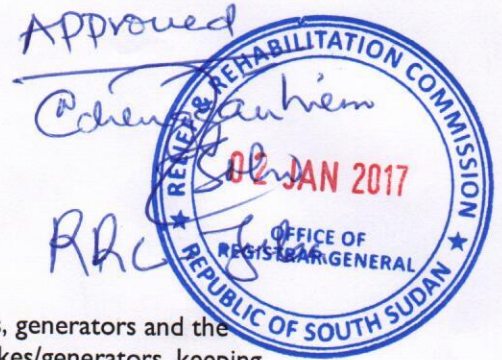 Approved
RELIEF & REHABILITATION COMMISSION
02 JAN 2017
RRC
OFFICE OF
REGISTRAR GENERAL
★ REPUBLIC OF SOUTH SUDAN ★
s, generators and the
kes/generators, keeping